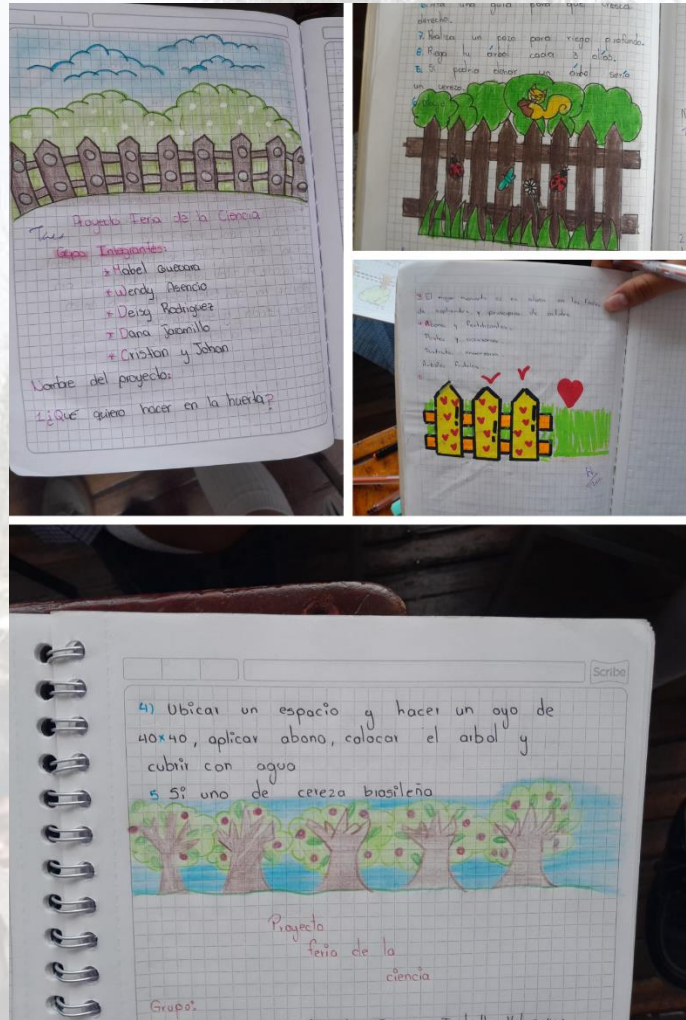 Proyecto Feria de la Ciencia
Integrantes:
* Mabel Guevara
* Wendy Asencio
* Deisy Rodriguez
* Dana Jaramillo
* Cristian y Johan
Nombre del proyecto:
1 ¿Qué quiero hacer en la huerta?
una guia para que cresca
derecho.
7. Realisa un pozo para riego profundo.
8. Riega tu árbol cada 3 días.
5. Si podria donar un árbol seria
un cerezo.
3 El mejor momento es en
de septiembre y principios de octubre
4) Ubicar un espacio y hacer un oyo de
40x40, aplicar abono, colocar el arbol y
cubrir con agua
5 Si uno de cereza brasileña
Proyecto
feria de la
ciencia
Grupo:
Scribe